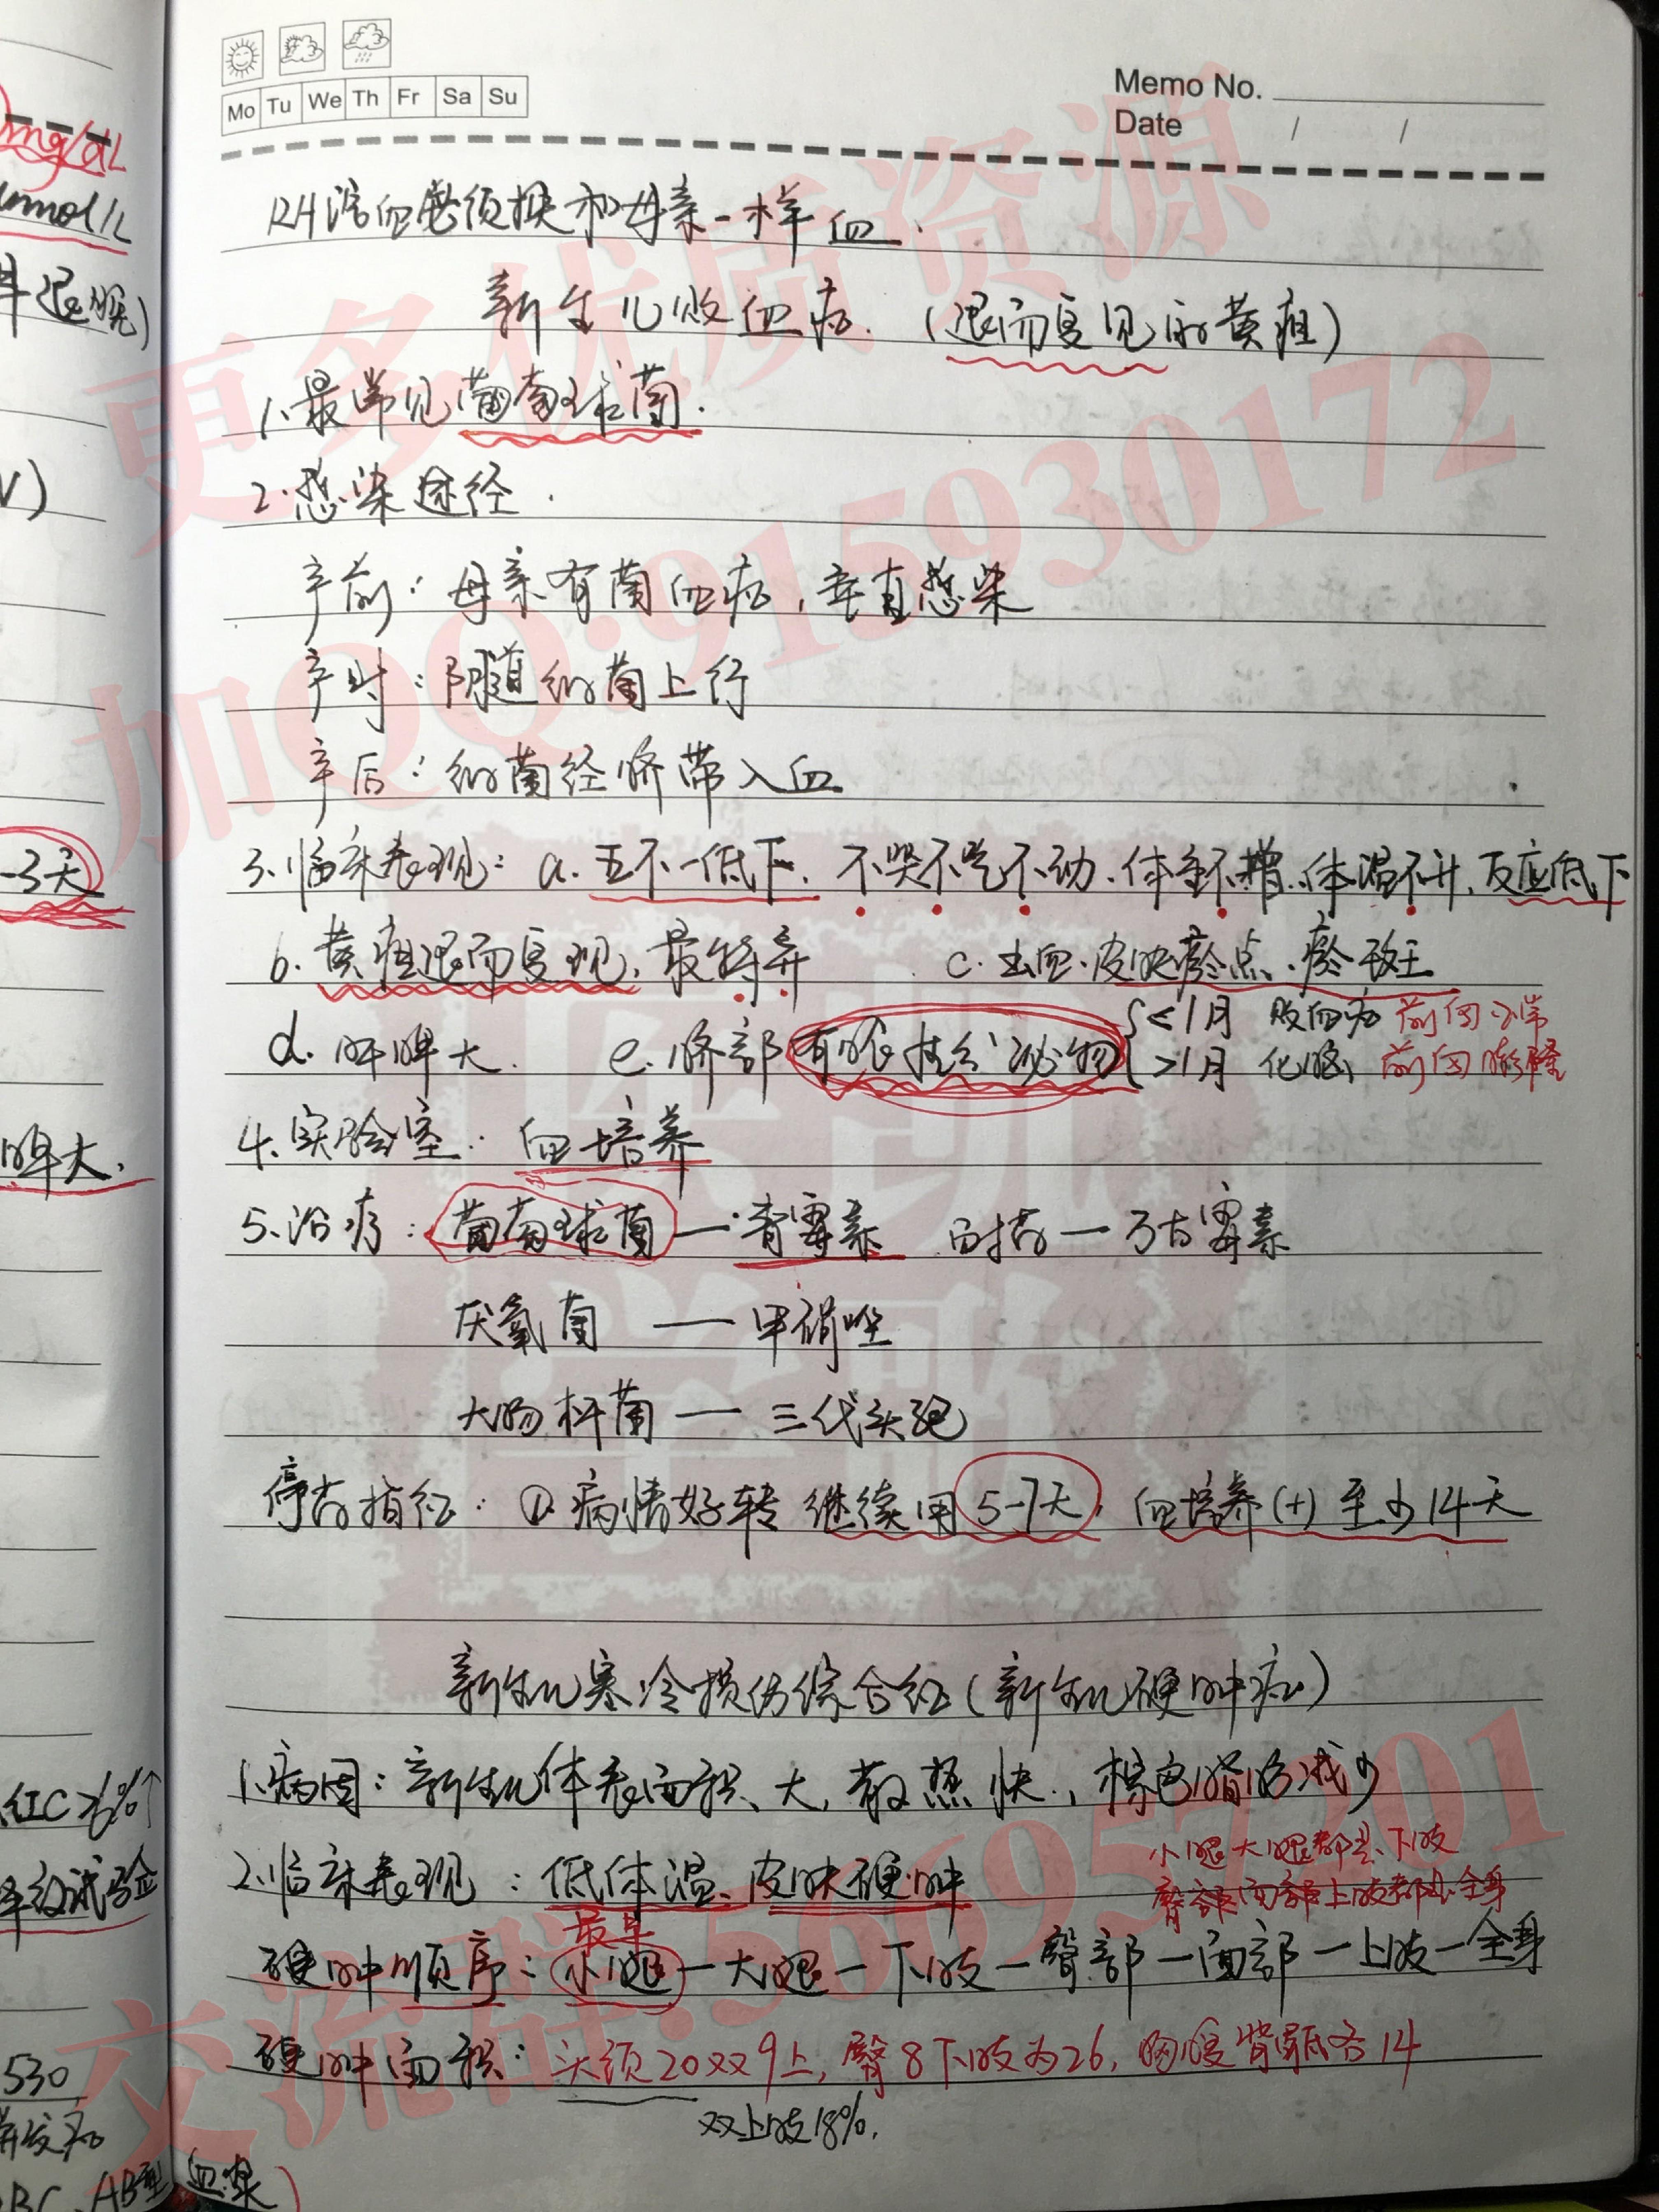 Mo Tu We Th Fr Sa Su
Memo No.
Date / /
RH溶血必须换和母亲一样血.
新生儿败血症.(退而复见的黄疸)
1.最常见葡萄球菌.
2.感染途径.
产前:母亲有菌血症,垂直感染
产时:阴道细菌上行
产后:细菌经脐带入血
3.临床表现:a.五不一低下.不哭不吃不动.体重不增.体温不升.反应低下
b.黄疸退而复现,最特异 c.出血.皮肤瘀点.瘀斑
d.肝脾大. e.脐部有脓性分泌物
≤1月 败血症 前囟正常
>1月 化脑 前囟膨隆
4.实验室:血培养
5.治疗:葡萄球菌—青霉素 耐药—万古霉素
厌氧菌 — 甲硝唑
大肠杆菌 — 三代头孢
停药指征:①.病情好转继续用5-7天,血培养(+)至少14天
新生儿寒冷损伤综合征(新生儿硬肿症)
1.病因:新生儿体表面积大,散热快,棕色脂肪减少
2.临床表现:低体温、皮肤硬肿
小腿大腿都是下肢
臀部面部上肢都是全身
最早
硬肿顺序:小腿—大腿—下肢—臀部—面部—上肢—全身
硬肿面积:头颈20双9上,臀8下肢为26,胸腹背骶各14
双上肢18%.
mg/dL
mmol/L
退晚)
V)
-3天
脾大.
红C>6%↑
试验
530
BC、AB型血浆)
更多优质资源
加QQ:915930172
医凯学歌
交流群:566957201